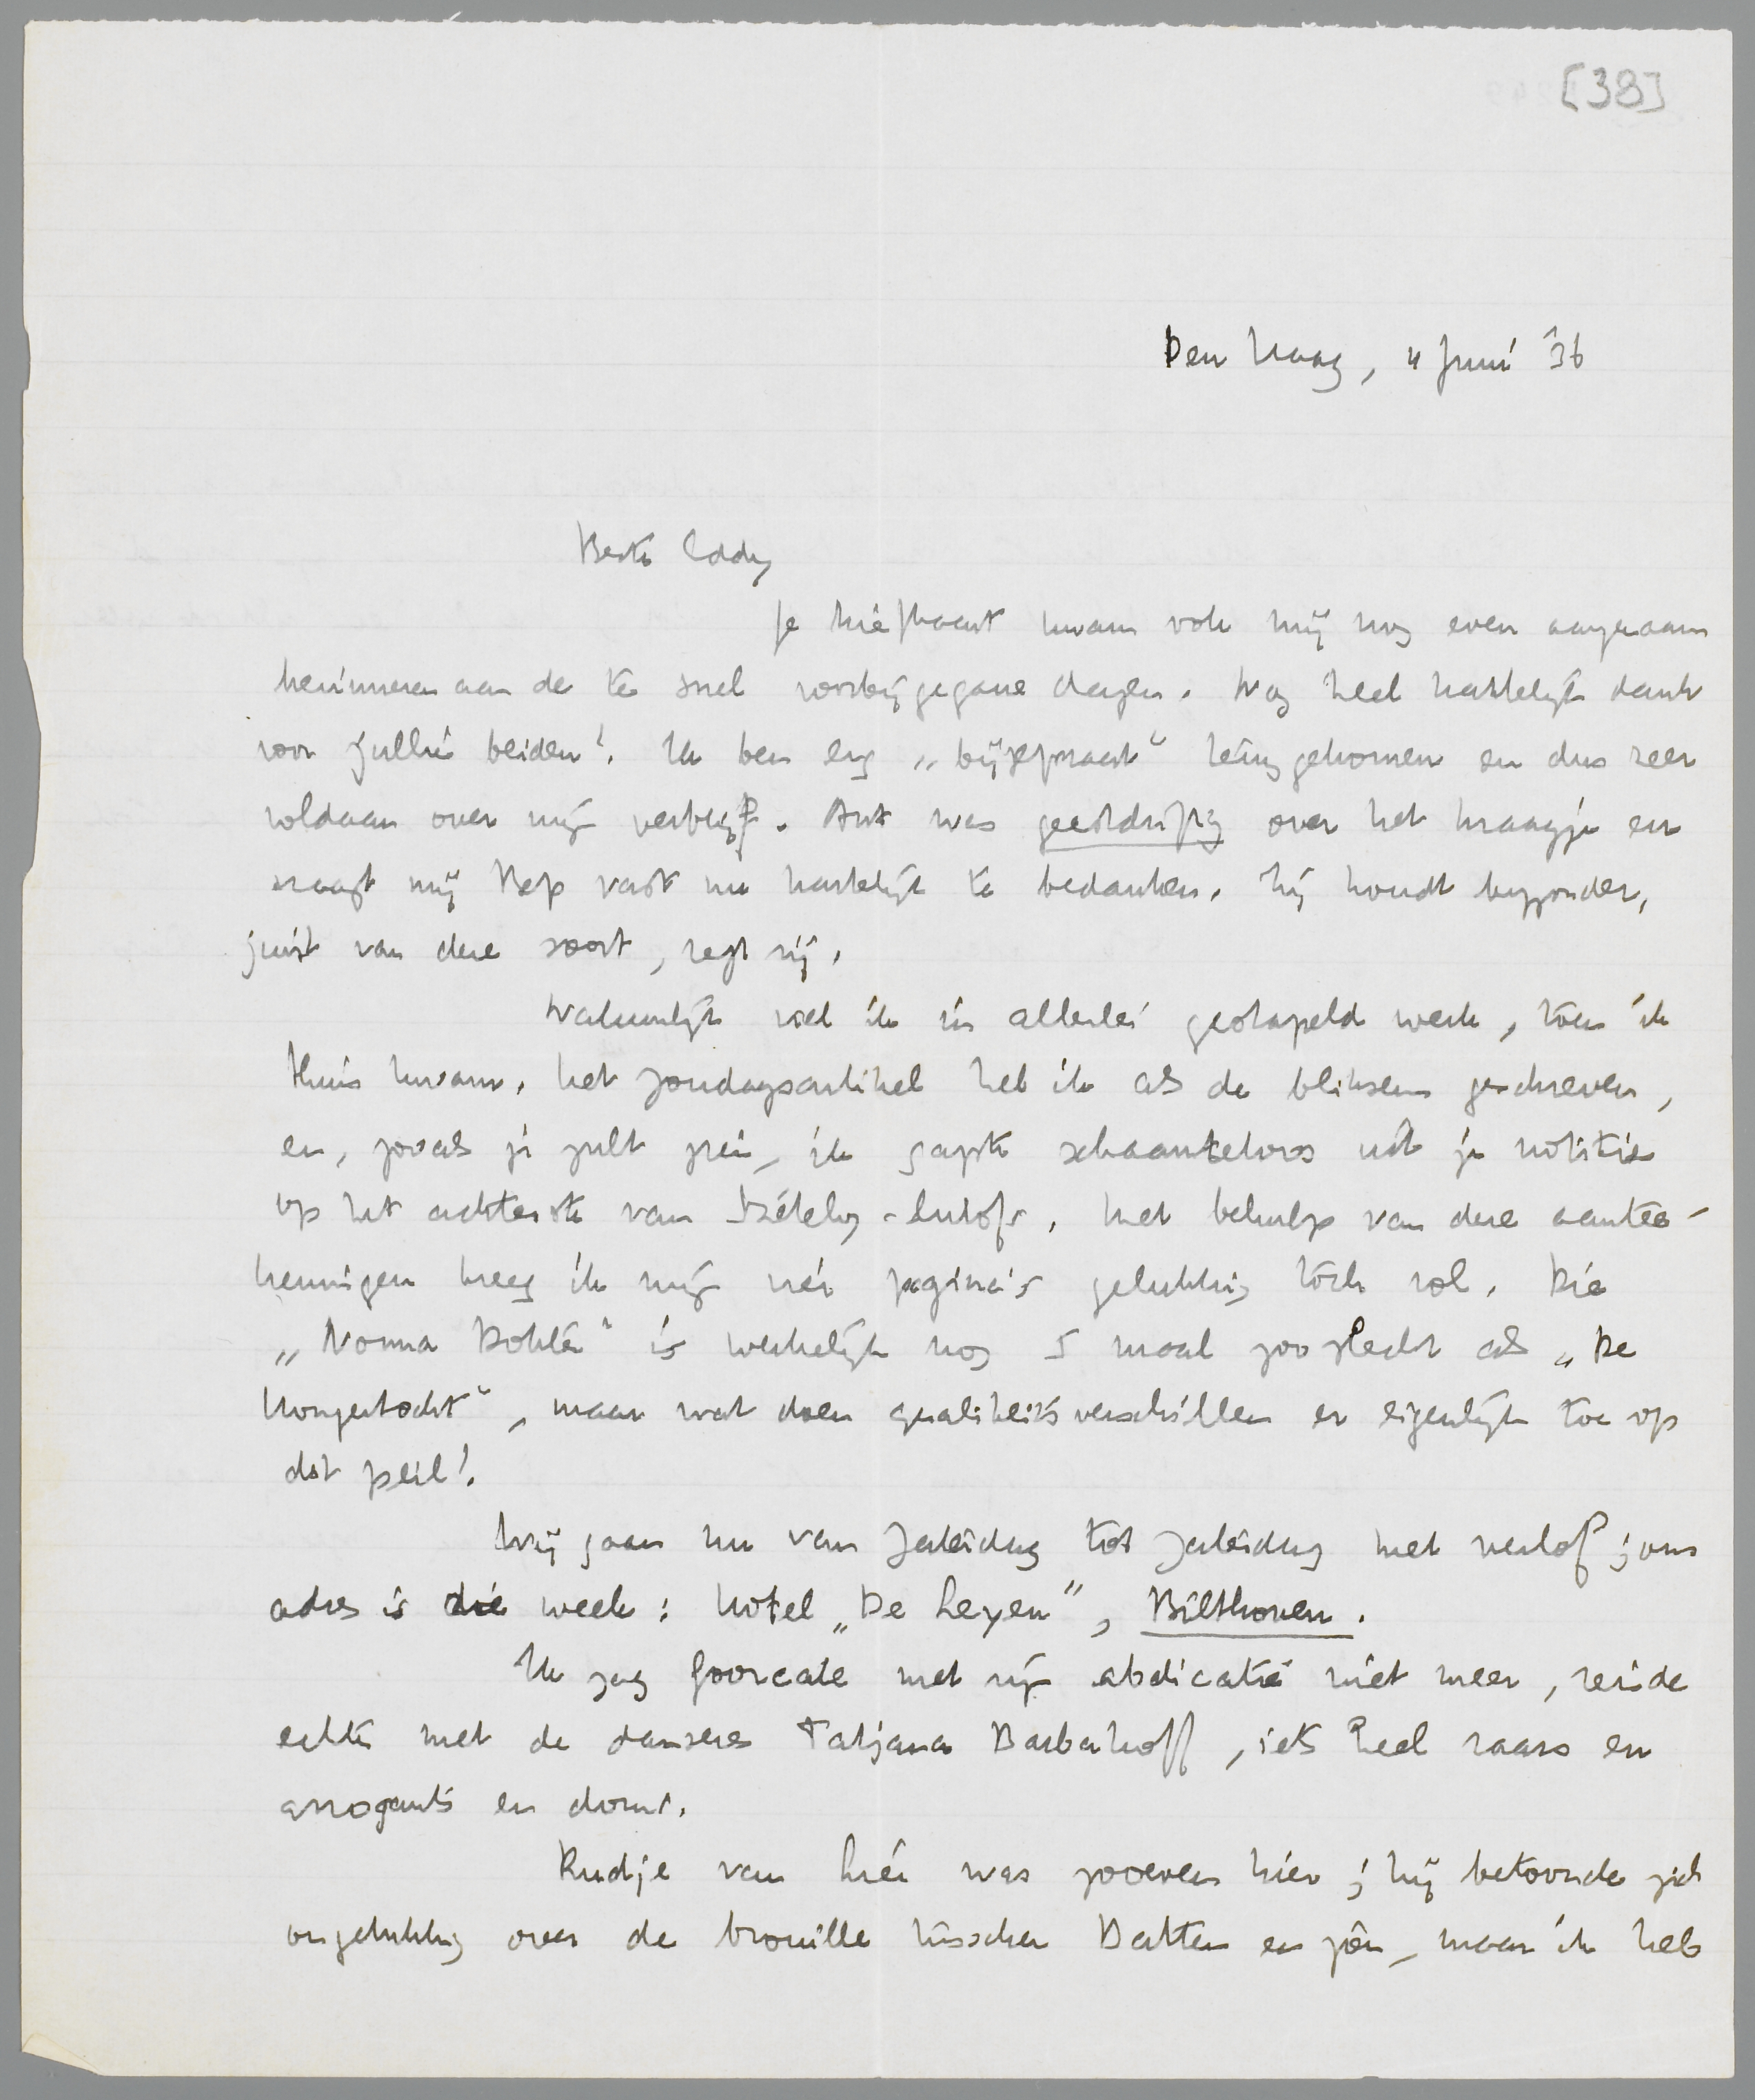 [38]
Den Haag, 4 Juni '36
Beste Eddy
Je briefkaart kwam ook mij nog even aangenaam
herinneren aan de te snel voorbijgegane dagen. Nog heel hartelijk dank
voor jullie beiden! Ik ben erg „bijgepraat" teruggekomen en dus zeer
voldaan over mijn verblijf. Ant was geestdriftig over het kraagje en
vraagt mij Bep vast nu hartelijk te bedanken. Zij houdt bijzonder,
juist van deze soort, zegt zij.
Natuurlijk viel ik in allerlei gestapeld werk, toen ik
thuis kwam. Het Zondagsartikel heb ik als de bliksem geschreven,
en, zooals je zult zien, ik gapte schaamteloos uit je notities
op het achterste van Székely-Lulofs. Met behulp van deze aantee-
keningen kreeg ik mijn vier pagina's gelukkig toch vol. Die
„Nonna Dohlée" is werkelijk nog 5 maal zoo slecht als „De
Hongertocht", maar wat doen qualiteitsverschillen er eigenlijk toe op
dat peil!
Wij gaan nu van Zaterdag tot Zaterdag met verlof; ons
adres is die week: hotel „De Leyen", Bilthoven.
Ik zag Gooreate met zijn abdicatie niet meer, reisde
echter met de danseres Tatjana Barbakoff, iets heel raars en
arrogants en doms.
Rudje van Lier was zooeven hier; hij betoonde zich
ongelukkig over de brouille tusschen Batten en jou, maar ik heb